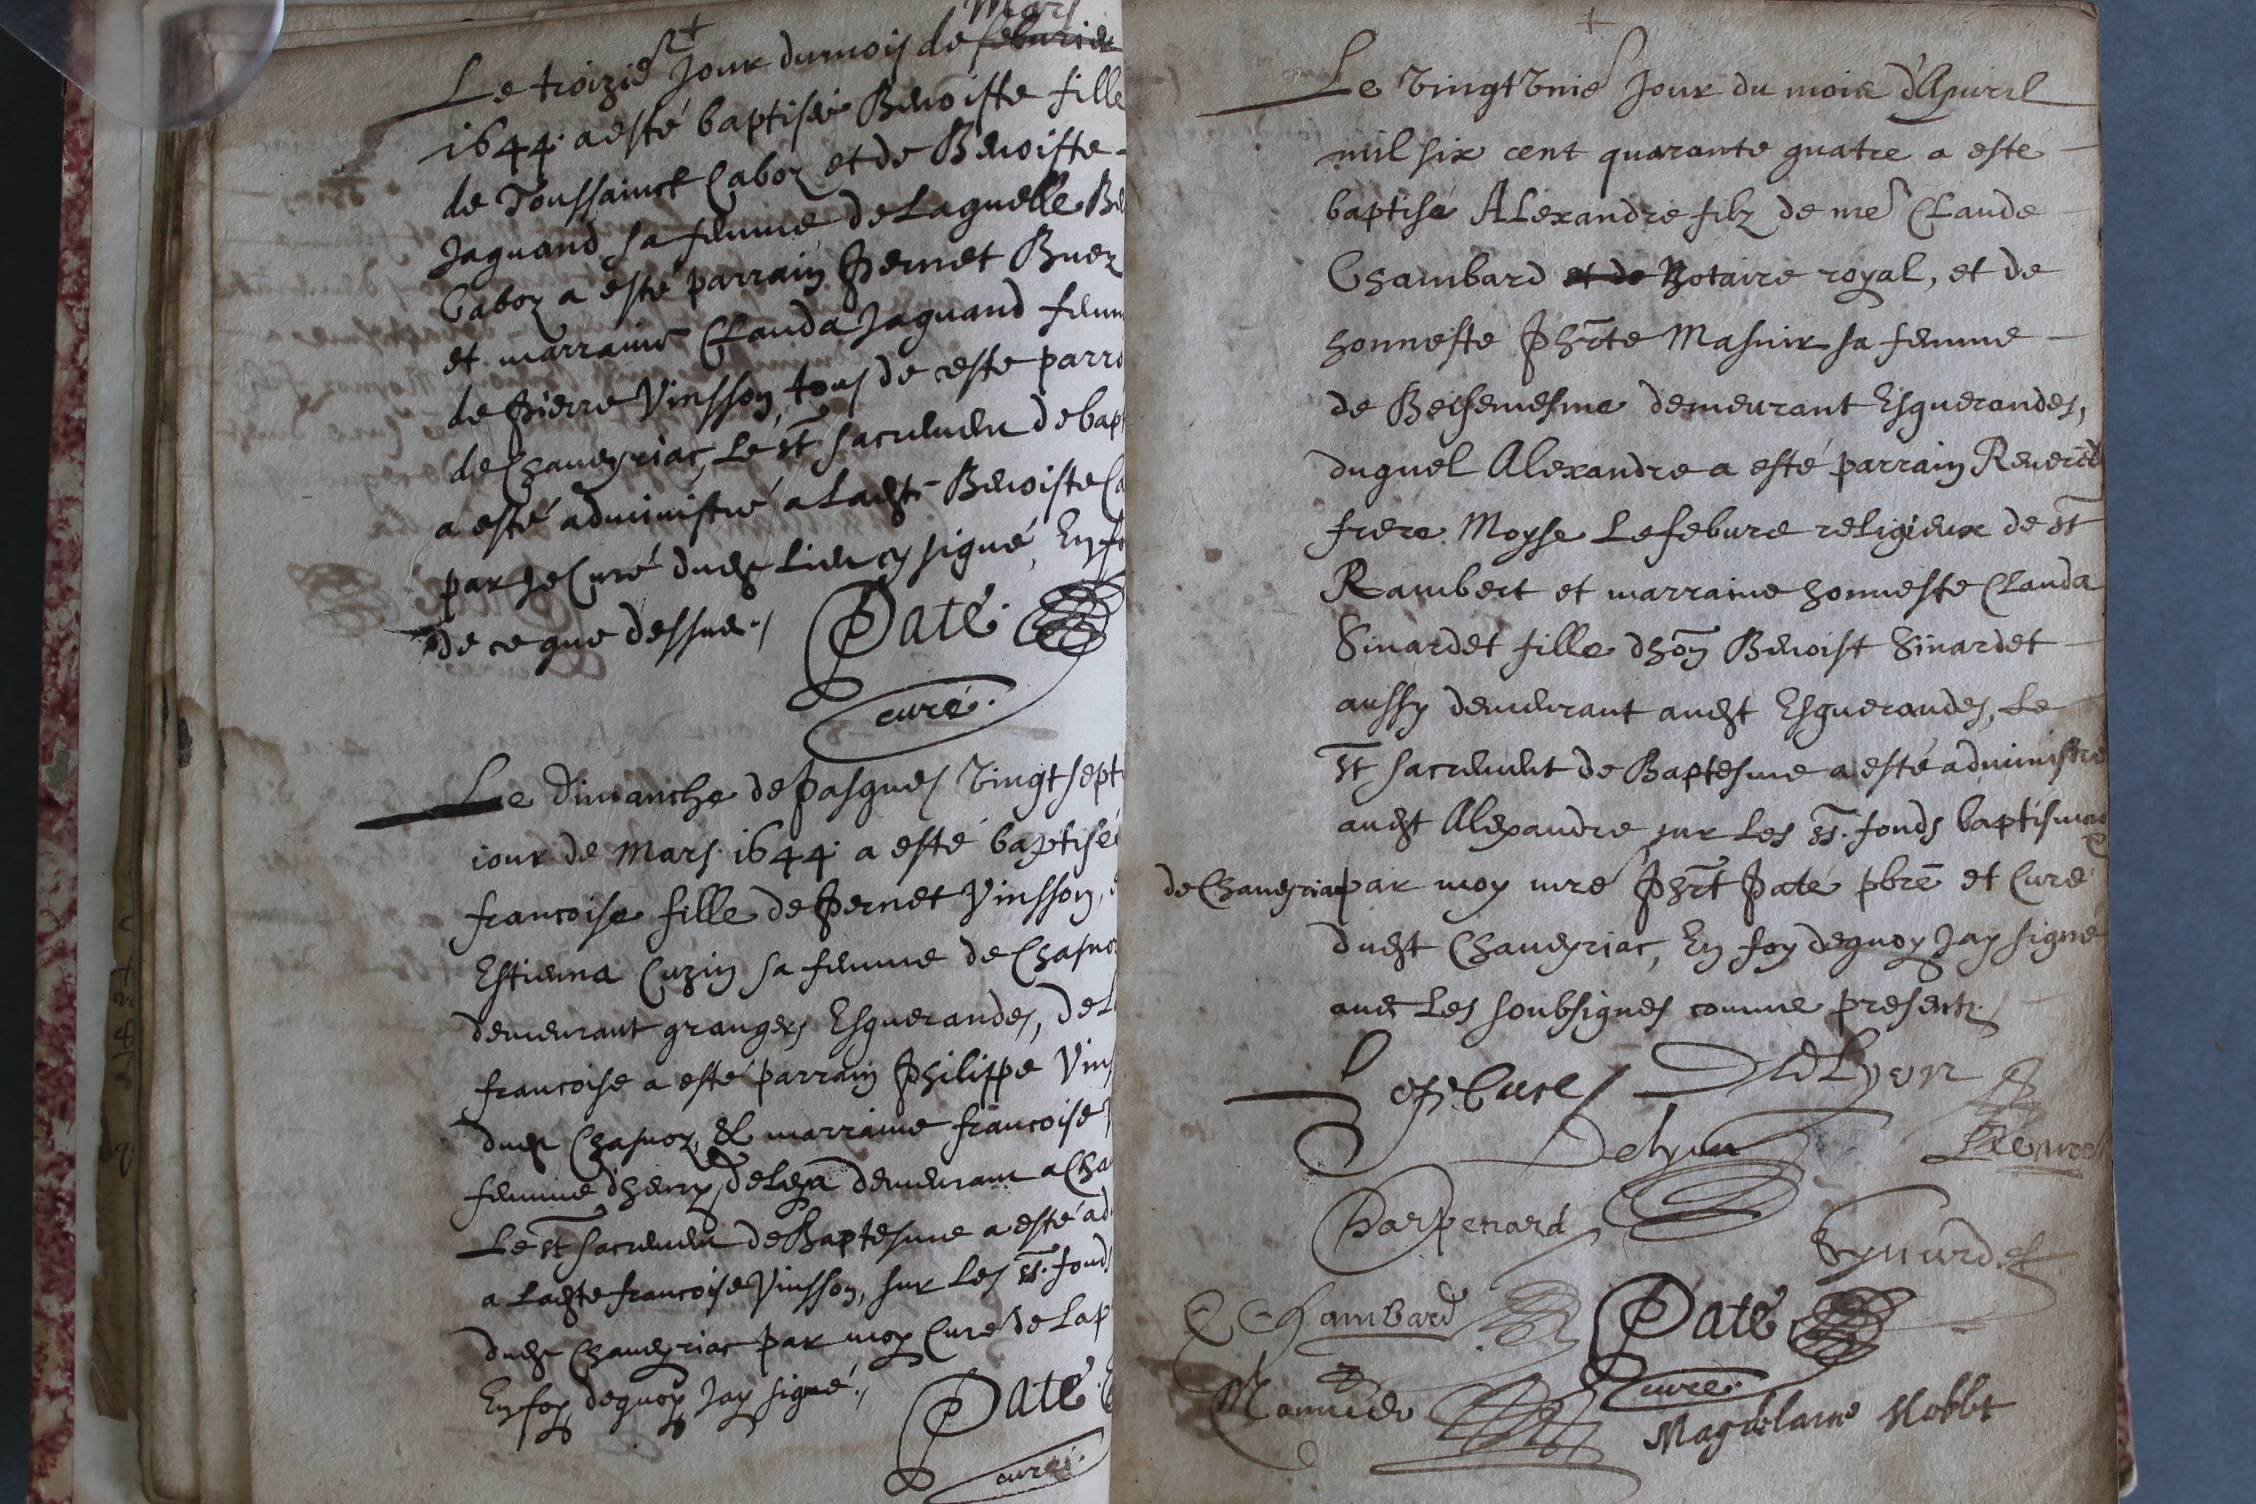 Mars
Le troizie Jour du mois de feburier
1644. a esté baptisée Benoiste fille
de Toussainct Caboz et de Benoiste
Jaquand sa femme de Laquelle Be
Caboz a esté parrain Pernet Buez
et marraine Clauda Jaquand femm
de Pierre Vinsson, tous de ceste parro
de Chaveyriac, Le st sacrement de bapt
a esté administré a Ladte Benoiste Ca
par Le Curé dudt Lieu cy signé, En fo
de ce que dessus./ Paté.
curé.
Le Dimanche de Pasques Vingt sept
iour de Mars. 1644. a esté baptisée
francoise fille de Pernet Vinsson, e
Estienna Cuzin sa femme de Chasnoz
demeurant grangers Esguerandes, de L
francoise a esté parrain Philippe Vins
dudt Chasnoz, & marraine francoise
femme dhenry deleza demeurant a Cha
Le st sacrement de Baptesme a esté ad
a Ladte francoise Vinsson, sur Les ss. fonds
dudt Chaveyriac par moy Curé de Lap
En foy dequoy Jay signé./
Paté.
curé.
Le Vingt Unie Jour du mois d'Apuril
mil six cent quarante quatre a esté
baptisé ALexandre filz de me Claude
Chambard et de Notaire royal, et de
honneste Phrte Masuir sa femme
de demeurant Esguerandes,
duquel Alexandre a esté parrain Reuered
frere Moyse Lefebure religieux de st
Rambert et marraine honneste Clauda
Sinardet fille dhon Benoist Sinardet
aussy demeurant audt Esguerandes, Le
st sacrement de Baptesme a esté administré
audt Alexandre sur Les ss. fonds baptismau
de Chaveyriac par moy mre Phrt Paté pbre et Curé
dudt Chaveyriac, En foy dequoy Jay signé
avec Les soubsignes comme presentz./
Lefebure DeLyon
Delyon
Charpenard Synardet
C Chambard Paté
curé.
Monnier Magdelaine Noblet